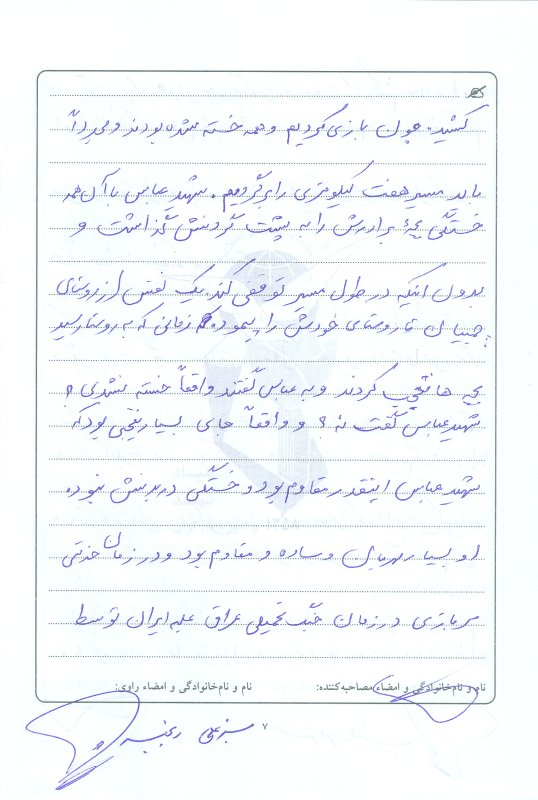 کشید. چون بازی کردیم و همه خسته شده بودند و مجدداً
باید مسیر هفت کیلومتری را برگردیم. شهید عباس با آن همه
خستگی بچهٔ برادرش را به پشت گردنش گذاشت و
بدون اینکه در طول مسیر توقفی کند یک نفس از روستای
تا روستای خودش را پیموده زمانی که به روستا رسید
بچه ها تعجب کردند و به عباس گفتند واقعاً خسته نشدی؟
شهید عباس گفت نه؟ و واقعاً جای بسیار تعجبی بود که
شهید عباس اینقدر مقاوم بود و خستگی در بدنش نبوده
او بسیار مهربان و ساده و مقاوم بود و در زمان خدمتی
سربازی در زمان جنگ تحمیلی عراق علیه ایران توسط
نام و نام‌خانوادگی و امضاء مصاحبه‌کننده: نام و نام‌خانوادگی و امضاء راوی:
۷